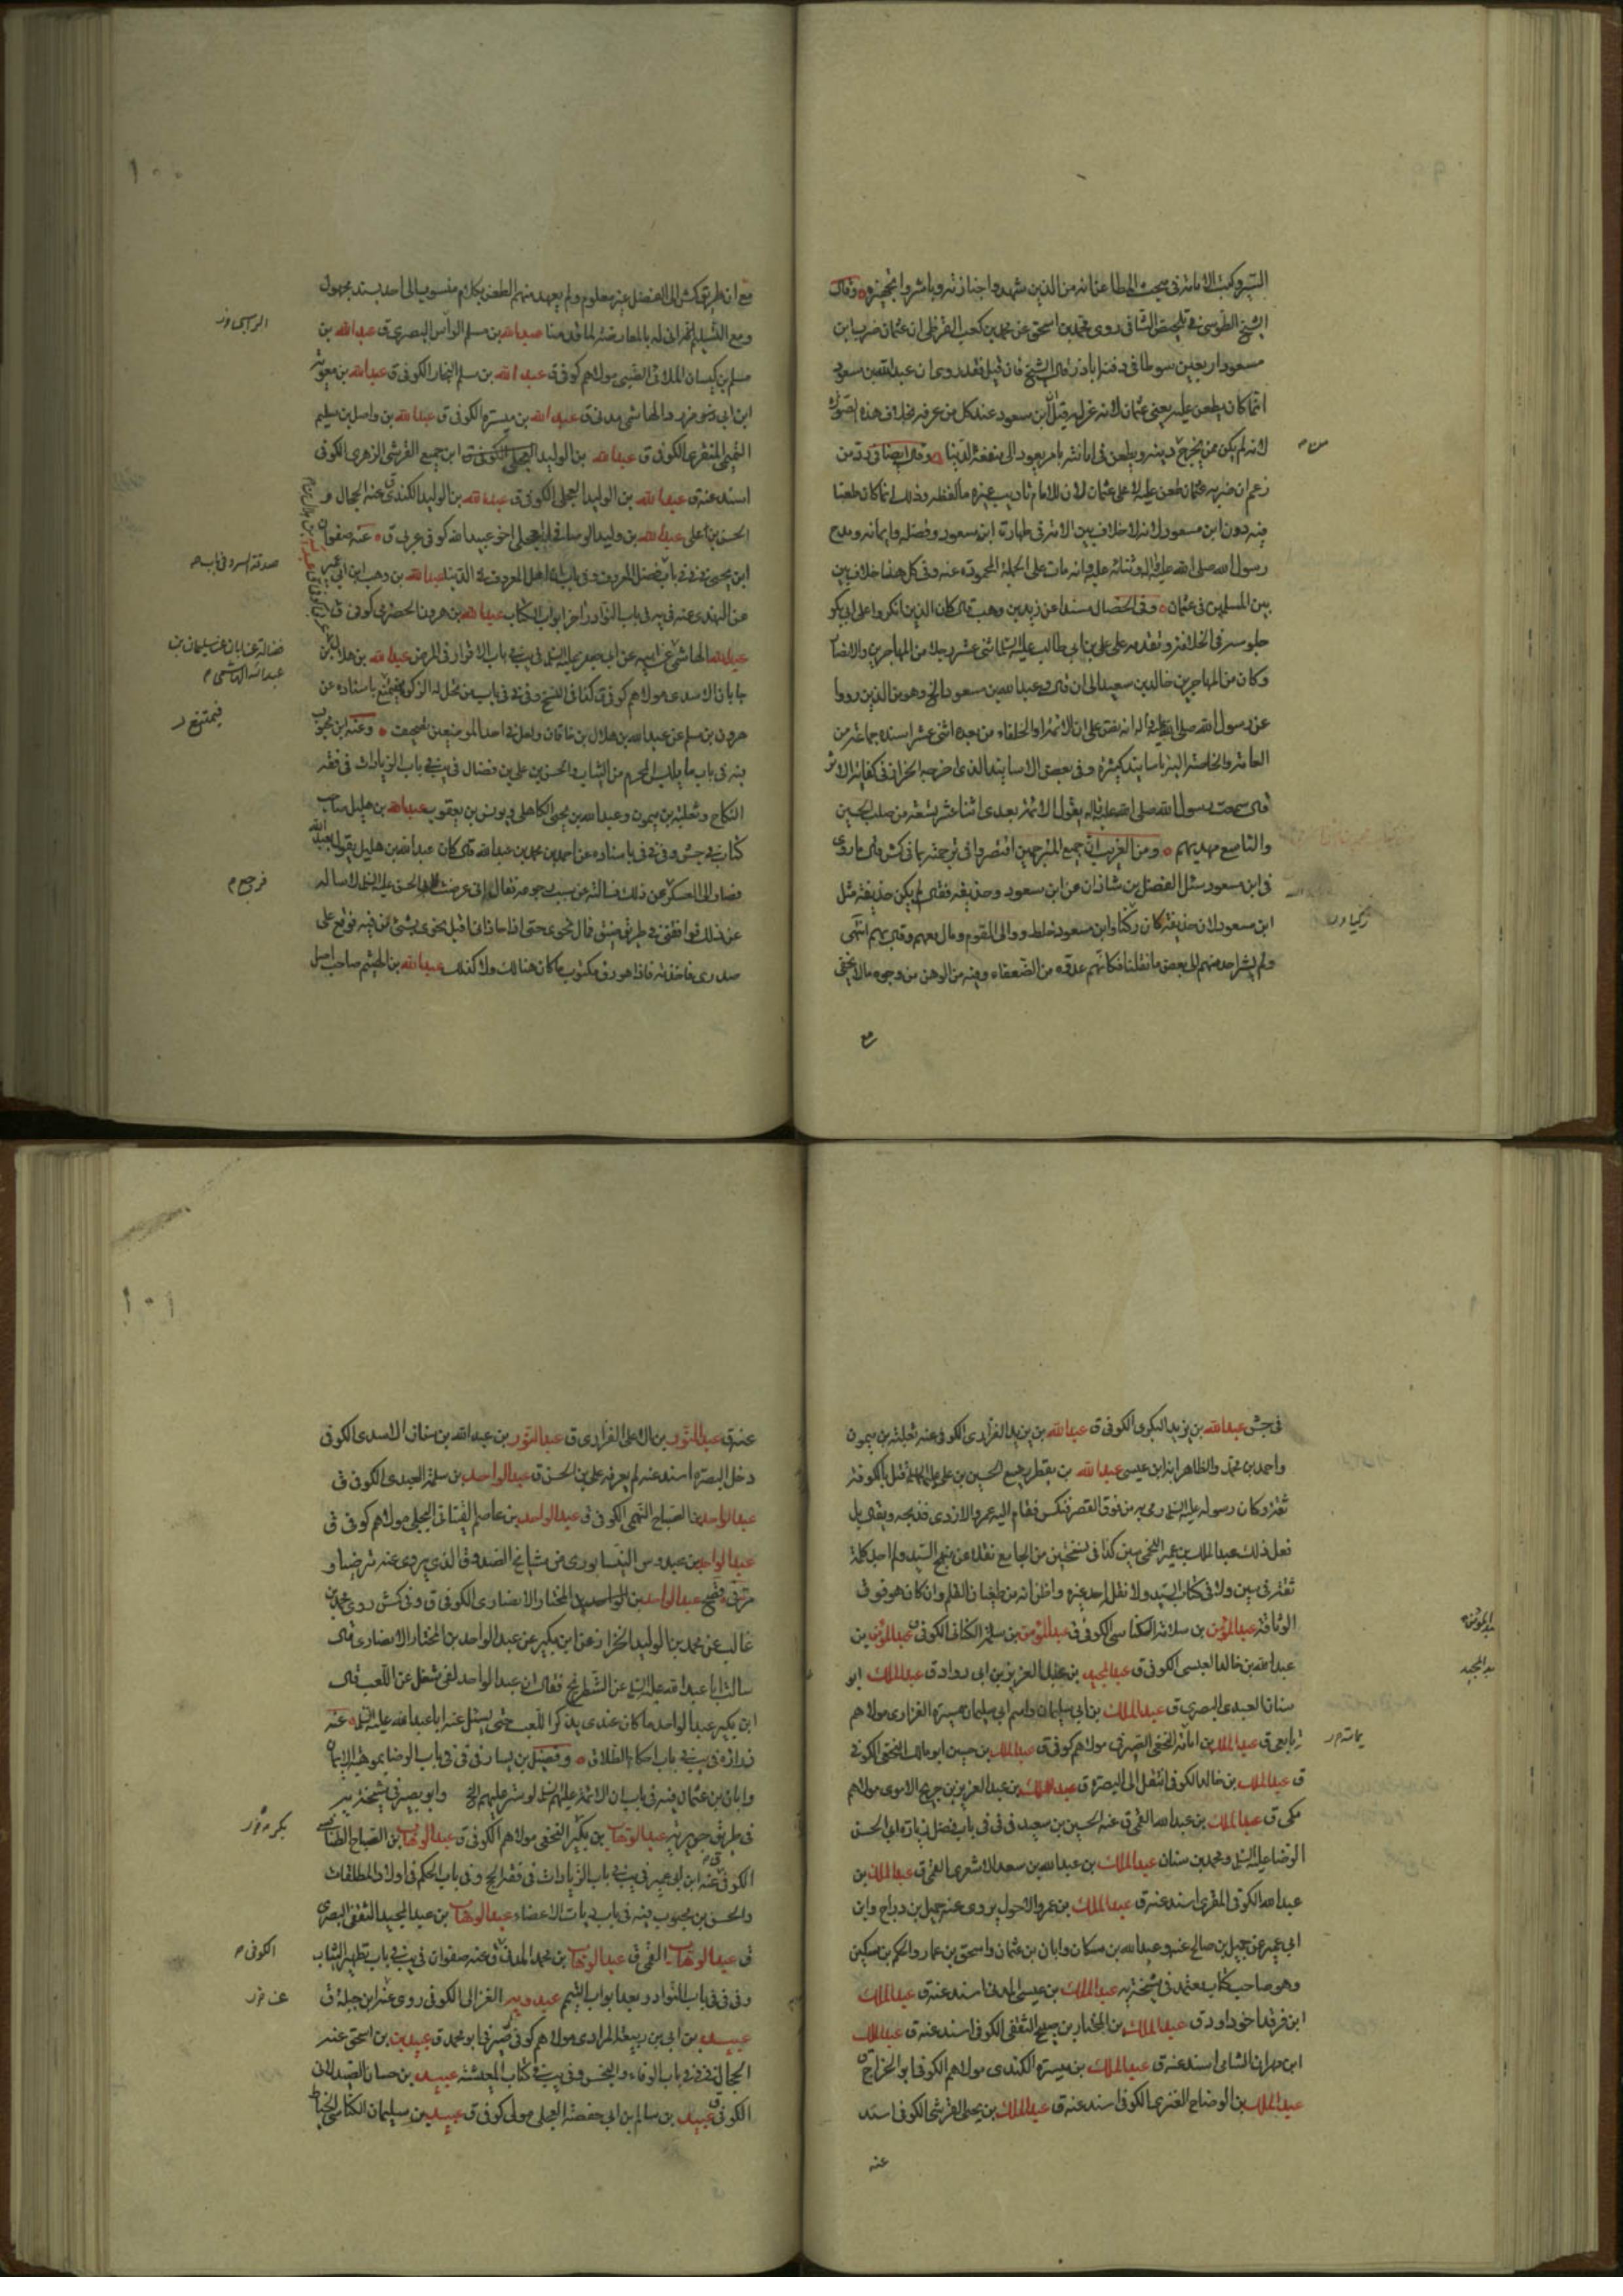 السير وكتب الامامة في مبحث المطاعن انه من الذين شهدوا جنازته وباشروا تجهيزه وقال
الشيخ الطوسي في تلخيص الشافي روى محمد بن اسحق عن محمد بن كعب القرظي ان عثمان ضرب ابن
مسعود اربعين سوطا في دفنه اباذر قال الشيخ فان قيل فقد روى ان عبد الله بن مسعود
انما كان يطعن عليه يعني عثمان لانه عزله قيل ابن مسعود عند كل من عرفه بخلاف هذه الصورة
لانه لم يكن ممن يخرج دينه ويطعن في امانته بامر يعود الى منفعة الدنيا وقال ايضا في رد من
زعم ان ضربه عثمان طعن عليه لا على عثمان لان للامام تاديب غيره ما لفظه وذلك انما كان طعنا
فيه دون ابن مسعود لانه لا خلاف بين الامة في طهارة ابن مسعود وفضله وايمانه ومدح
رسول الله صلى الله عليه واله وثنائه عليه وانه مات على الجملة المحمودة عنه وفي كل هذا خلاف بين
بين المسلمين في عثمان وفي الخصال مسندا عن زيد بن وهب قال كان الذين انكروا على ابي بكر
جلوسه في الخلافة وتقدمه على علي بن ابي طالب عليه السلام اثنى عشر رجلا من المهاجرين والانصار
وكان من المهاجرين خالد بن سعيد الى ان قال وعبد الله بن مسعود الخ وهو من الذين رووا
عن رسول الله صلى الله عليه واله انه نص على ان الائمة او الخلفاء من بعده اثنى عشر اسنده جماعة من
العامة والخاصة اليه باسانيد كثيرة وفي بعض الاسانيد الذي اخرجه الخزاز في كفاية الاثر
قال سمعت رسول الله صلى الله عليه واله يقول الائمة بعدي اثنا عشر تسعة من صلب الحسين
والتاسع مهديهم ومن الغريب ان جميع المترجمين اقتصروا في ترجمته بما في كش قال ما روى
في ابن مسعود سئل الفضل بن شاذان عن ابن مسعود وحذيفة فقال لم يكن حذيفة مثل
ابن مسعود لان حذيفة كان ركنا وابن مسعود خلط ووالى القوم ومال معهم وقال بهم انتهى
ولم يشر احد منهم الى بعض ما نقلنا فكانهم عدوه من الضعفاء وفيه من الوهن من وجوه ما لا يخفى
مع
١٠٠
مع ان طريق كش الى الفضل غير معلوم ولم يعهد منهم الطعن بكلام منسوب الى احد بسند مجهول
عبد الله بن مسلم الراس البصري ق عبد الله بن
مسلم بن كيسان الملائي الضبي مولاهم كوفي ق عبد الله بن مسلم النجار الكوفي ق عبد الله بن معوية
الهاشمي مدني ق عبد الله بن ميسرة الكوفي ق عبد الله بن واصل بن سليم
التميمي المنقري الكوفي ق عبد الله بن الوليد ابن جميع القرشي الزهري الكوفي
اسند عنه ق عبد الله بن الوليد العجلي الكوفي ق عبد الله بن الوليد الكندي ق عنه الجمال و
الحسن بن علي عبد الله بن وليد الوصافي العجلي اخو عبيد الله كوفي عربي ق عنه صفوان
ابن يحيى في في باب فضل المعروف وفي باب ان اهل المعروف في الدنيا عبد الله بن وهب ابن ابي عمير
عن النهدي عنه في يه في باب النوادر اخر ابواب الكتاب عبد الله بن هرون الحضرمي كوفي ق
عبد الله الهاشمي عن ابيه عن ابي جعفر عليه السلام في يب في باب الاقرار في المرض عبد الله بن هلال بن
جابان الاسدي مولاهم كوفي ق كذا في النسخ وفي في باب من تحل له الزكوة فيمتنع باسناده عن
هرون بن مسلم عن عبد الله بن هلال بن خاقان ولعل في احد الموضعين تصحيف وعنه ابن محبوب
فيه في باب ما يلبس المحرم من الثياب والحسن بن علي بن فضال في يب في باب الزيادات في فقه
النكاح وثعلبة بن ميمون وعبد الله بن يحيى الكاهلي ويونس بن يعقوب عبد الله بن هليل صاحب
كتاب في جش وفي في باسناده عن احمد بن محمد بن عبد الله قال كان عبد الله بن هليل يقول بعبد الله
فصار الى العسكر عن ذلك فسالته عن سبب رجوعه فقال اني عرضت لابي الحسن عليه السلام ان اساله
عن ذلك فوافقني في طريق ضيق فمال نحوي حتى اذا حاذاني اقبل نحوي بشئ من فيه فوقع على
صدري فاخذته فاذا هو رق مكتوب ما كان هنالك ولا كذلك عبد الله بن الهيثم صاحب اصل
الراسي
صدقة السر وفي باب
فضالة عن ابان عن سليمان بن
عبد الله الهاشمي م
فيمتنع
فرجع م
في جش عبد الله بن يزيد البكري الكوفي ق عبد الله بن يزيد الفزاري الكوفي عنه ثعلبة بن ميمون
واحمد بن محمد والظاهر انه ابن عيسى عبد الله بن يقطر رضيع الحسين بن علي عليهما السلام قتل بالكوفة
ثقة وكان رسوله عليه السلام رمي به من فوق القصر فتكسر فقام اليه عمرو الازدي فذبحه ويقال بل
فعل ذلك عبد الملك بن عمير اللخمي سين كذا في نسختين من الجامع نقلا عن منهج السيد ولم اجد كلمة
ثقة في سين ولا في كتاب السيد ولا نقل احد غيره واظن انه من طغيان القلم وان كان هو فوق
الوثاقة عبد المؤمن بن سلامة المكناسي الكوفي ق عبد المؤمن بن سلمة الكناني الكوفي ق عبد المؤمن بن
عبد الله بن خالد العبسي الكوفي ق عبد المجيد بن عبد العزيز بن ابي رواد ق عبد الملك ابو
سنان العبدي البصري ق عبد الملك بن ابي سليمان واسم ابي سليمان ميسرة الفزاري مولاهم
تابعي ق عبد الملك بن امامة النخعي الصيرفي مولاهم كوفي ق عبد الملك بن حسين ابو مالك النخعي الكوفي
ق عبد الملك بن خالد الكوفي انتقل الى البصرة ق عبد الملك بن عبد العزيز بن جريج الاموي مولاهم
مكي ق عبد الملك بن عبد الله القمي ق عنه الحسين بن سعيد في في في باب فضل زيارة ابي الحسن
الرضا عليه السلام ومحمد بن سنان عبد الملك بن عبد الله بن سعد الاشعري القمي ق عبد الملك بن
عبد الله الكوفي المقري اسند عنه ق عبد الملك بن عمرو الاحول يروي عنه جميل بن دراج وابن
ابي عمير عن جميل بن صالح عنه وعبد الله بن مسكان وابان بن عثمان واسحق بن عمار والحكم بن مسكين
وهو صاحب كتاب معتمد في مشيخة يه عبد الملك بن عيسى المدني اسند عنه ق عبد الملك
ابن فرقد اخو داود ق عبد الملك بن المختار بن صبيح الثقفي الكوفي اسند عنه ق عبد الملك
ابن مهران الشامي اسند عنه ق عبد الملك بن ميسرة الكندي مولاهم الكوفي ابو الخزاج ق
عبد الملك بن الوضاح العنزي الكوفي اسند عنه ق عبد الملك بن يحيى القرشي الكوفي اسند
عنه
عبد المؤمن
عبد المجيد
١٠١
عنه ق عبد النور بن عبد الله بن سنان الاسدي الكوفي
دخل البصرة اسند عنه لم يعرفه علي بن الحسن ق عبد الواحد بن سلمة العبدي الكوفي ق
عبد الواحد بن الصباح التيمي الكوفي ق عبد الواحد بن عاصم الفتياني البجلي مولاهم كوفي ق
عبد الواحد بن عبدوس النيسابوري من مشايخ الصدوق الذي يروي عنه مترضيا و
عبد الواحد بن المختار الانصاري الكوفي ق وفي كش روى محمد بن
غالب عن محمد بن الوليد الخزاز عن ابن بكير عن عبد الواحد بن المختار الانصاري قال
سالت ابا عبد الله عليه السلام عن الشطرنج فقال ان عبد الواحد لفي شغل عن اللعب قال
ابن بكير عبد الواحد ما كان عندي يذكر اللعب حتى يسئل عنه ابا عبد الله عليه السلام عنه
زرارة في يب في باب احكام الطلاق وفضيل بن يسار في في في باب الرضا بموهبة الايمان
وابان بن عثمان فيه في باب ان الائمة عليهم السلام لو ستر عليهم الخ وابو بصير في مشيخة يه
في طريق جويرية عبد الوهاب بن بكير النخعي مولاهم الكوفي ق عبد الوهاب بن الصباح الطنافسي
الكوفي ق عنه ابن ابي عمير في يب في باب الزيادات في فقه الحج وفي باب الحكم في اولاد المطلقات
والحسن بن محبوب فيه في باب ديات الاعضاء عبد الوهاب بن عبد المجيد الثقفي البصري
ق عبد الوهاب القمي ق عبد الوهاب بن محمد المدني ق عنه صفوان في يب في باب تطهير الثياب
وفي في في باب النوادر بعد ابواب التيمم عبدويه الغزالي الكوفي روى عنه ابن جبلة ق
عبيد بن ابي بن ربيعة المرادي مولاهم كوفي صيرفي ابو محمد ق عبيد بن اسحق عنه
الحجال في في في باب الوفاء والبخس وفي يب في كتاب المعيشة عبيد بن حسان الصيدلاني
الكوفي ق عبيد بن سالم بن ابي حفصة العجلي مولى كوفي ق عبيد بن سليمان الكناسي الخياط
الكوفي